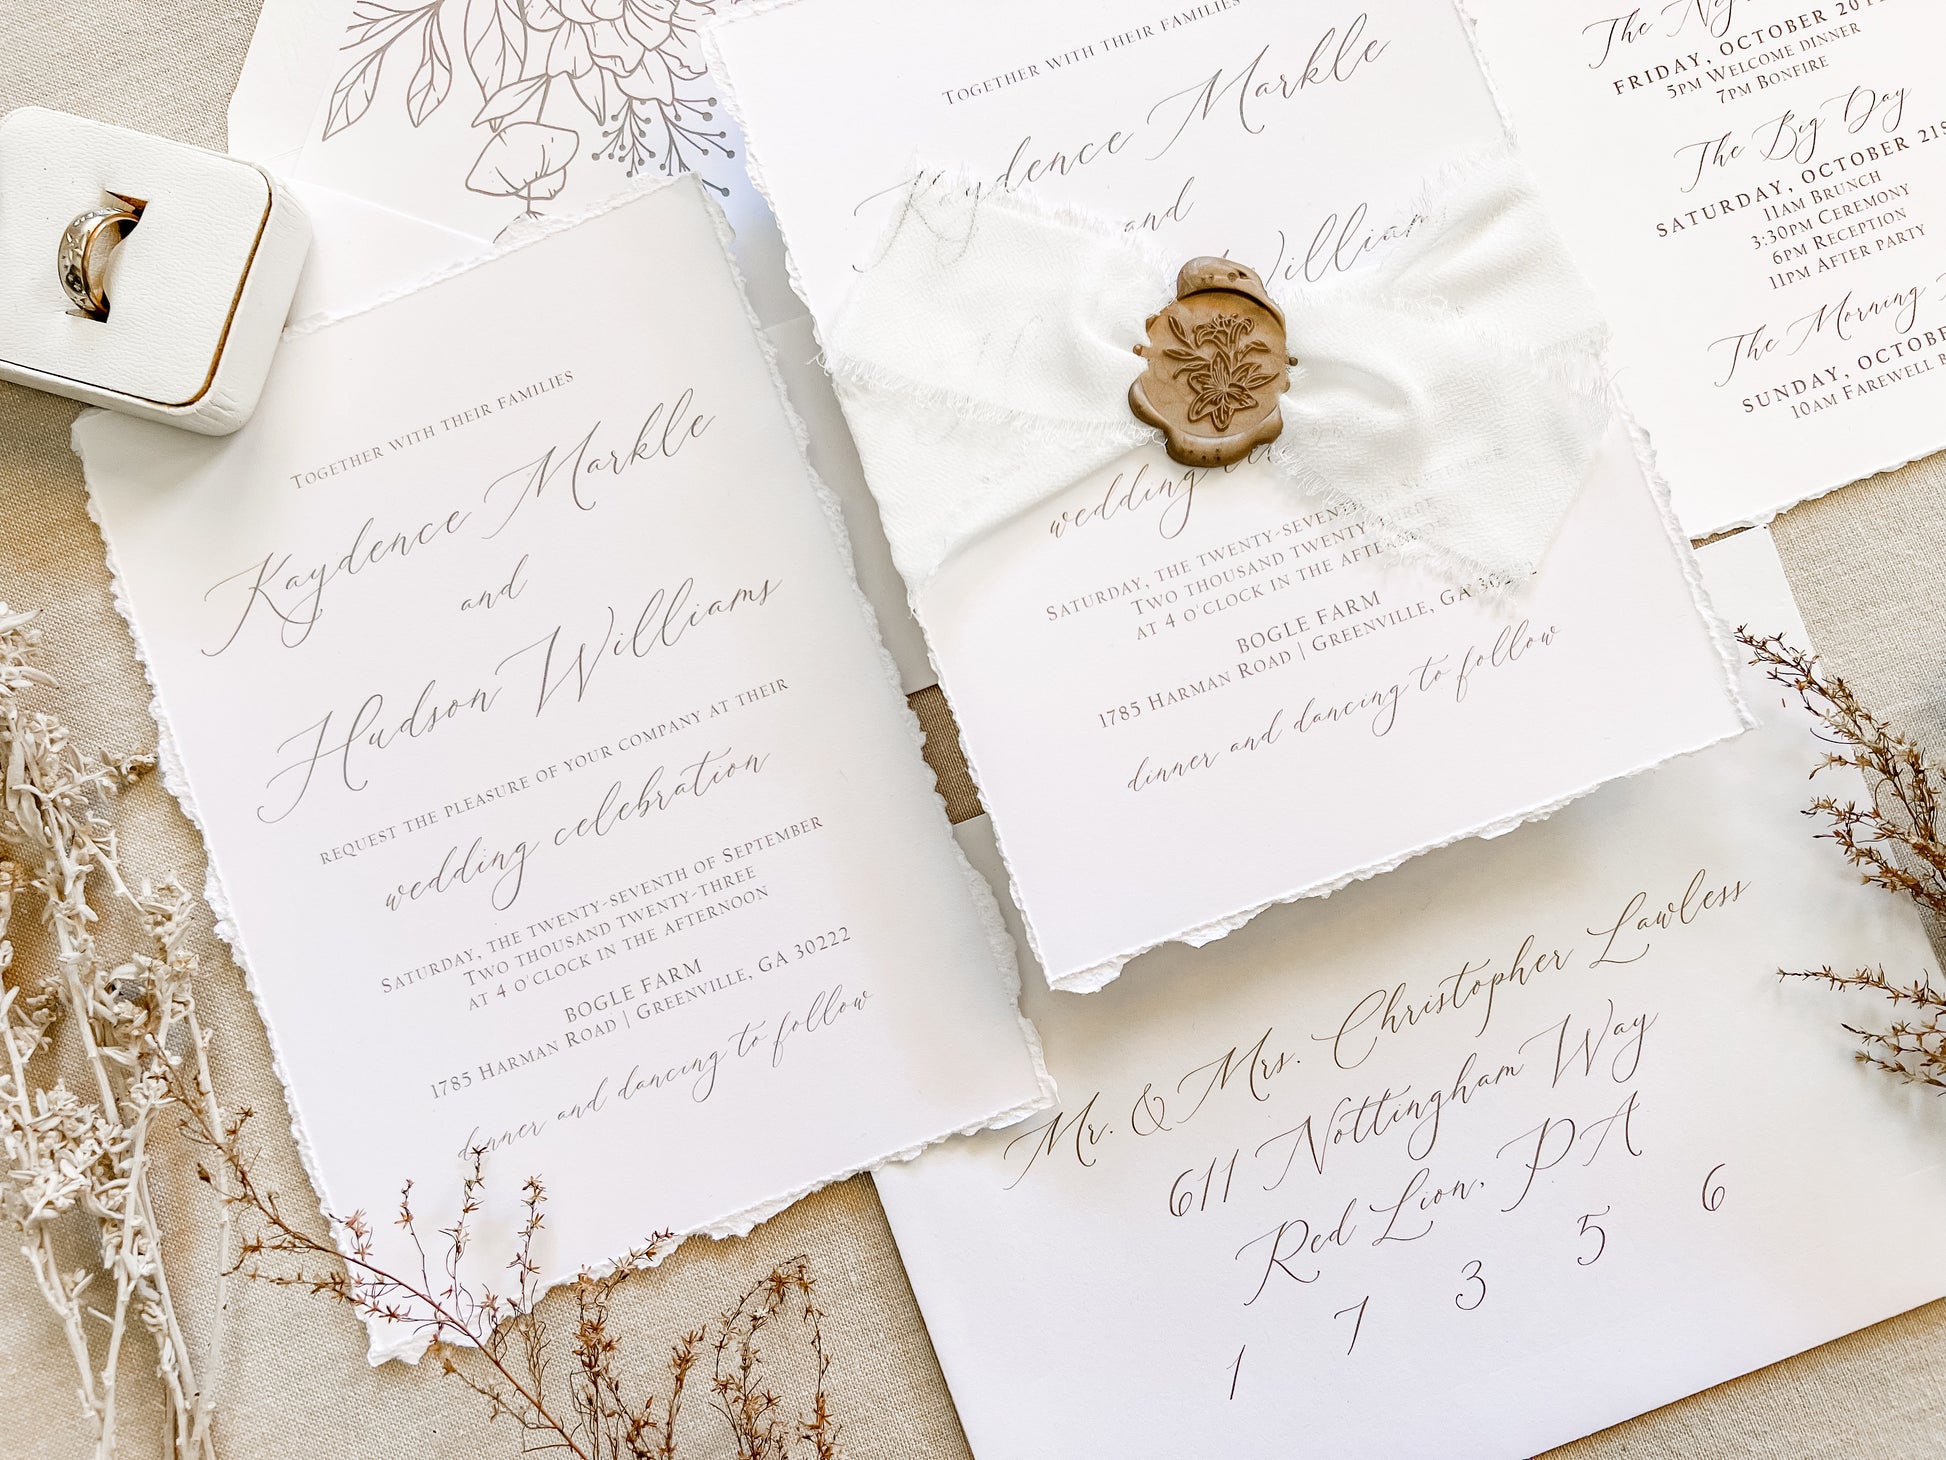 Together with their families
Kaydence Markle
and
Hudson Williams
request the pleasure of your company at their
wedding celebration
Saturday, the twenty-seventh of September
Two thousand twenty-three
at 4 o'clock in the afternoon
BOGLE FARM
1785 Harman Road | Greenville, GA 30222
dinner and dancing to follow
Together with their families
Kaydence Markle
and
Williams
wedding
Saturday, the twenty-seventh of September
Two thousand twenty-three
at 4 o'clock in the afternoon
BOGLE FARM
1785 Harman Road | Greenville, GA
dinner and dancing to follow
The
FRIDAY, OCTOBER 20
5pm Welcome dinner
7pm Bonfire
The Big Day
SATURDAY, OCTOBER 21s
11am Brunch
3:30pm Ceremony
6pm Reception
11pm After party
The Morning
SUNDAY, OCTOBE
10am Farewell
Mr. & Mrs. Christopher Lawless
611 Nottingham Way
Red Lion, PA
1 7 3 5 6